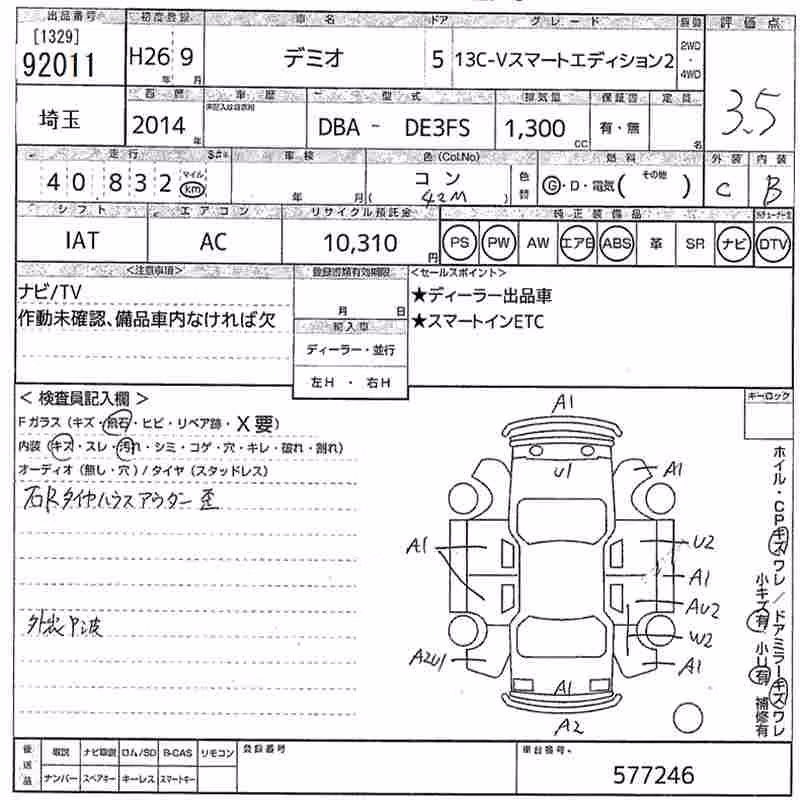 出品番号 初度登録 車名 ドア グレード 駆動 評価点
[1329]
92011 H26年 9月 デミオ 5 13C-Vスマートエディション2 2WD・4WD
西暦 車歴 型式 排気量 保証書 定員
未記入は自家用
埼玉 2014年 DBA - DE3FS 1,300cc 有・無 名 3.5
走行 車検 色(Col.No) 燃料 外装 内装
40,832 マイル km 年 月 コン 色替 G・D・電気( その他 ) C B
( 42M )
シフト エアコン リサイクル預託金 純正装備品
IAT AC 10,310円 PS PW AW エアB ABS 革 SR ナビ DTV
<注意事項> 登録書類有効期限 <セールスポイント>
ナビ/TV 月 日 ★ディーラー出品車
作動未確認、備品車内なければ欠 ★スマートインETC
輸入車
ディーラー・並行
左H ・ 右H
＜検査員記入欄＞
Fガラス(キズ・飛石・ヒビ・リペア跡・X要)
内装(キズ・スレ・汚れ・シミ・コゲ・穴・キレ・破れ・割れ)
オーディオ(無し・穴)/タイヤ(スタッドレス)
右Rタイヤハウスアウター歪
外装 波
キーロック
A1
U1
A1
A1
U2
A1
AU2
W2
A2U1
A1
A1
A2
ホイル・CPキズワレ/ドアミラーキズワレ
小キズ有 小U有 補修有
後送品 取説 ナビ取説 ロム/SD B-CAS リモコン 登録番号 車台番号
ナンバー スペアキー キーレス スマートキー 577246